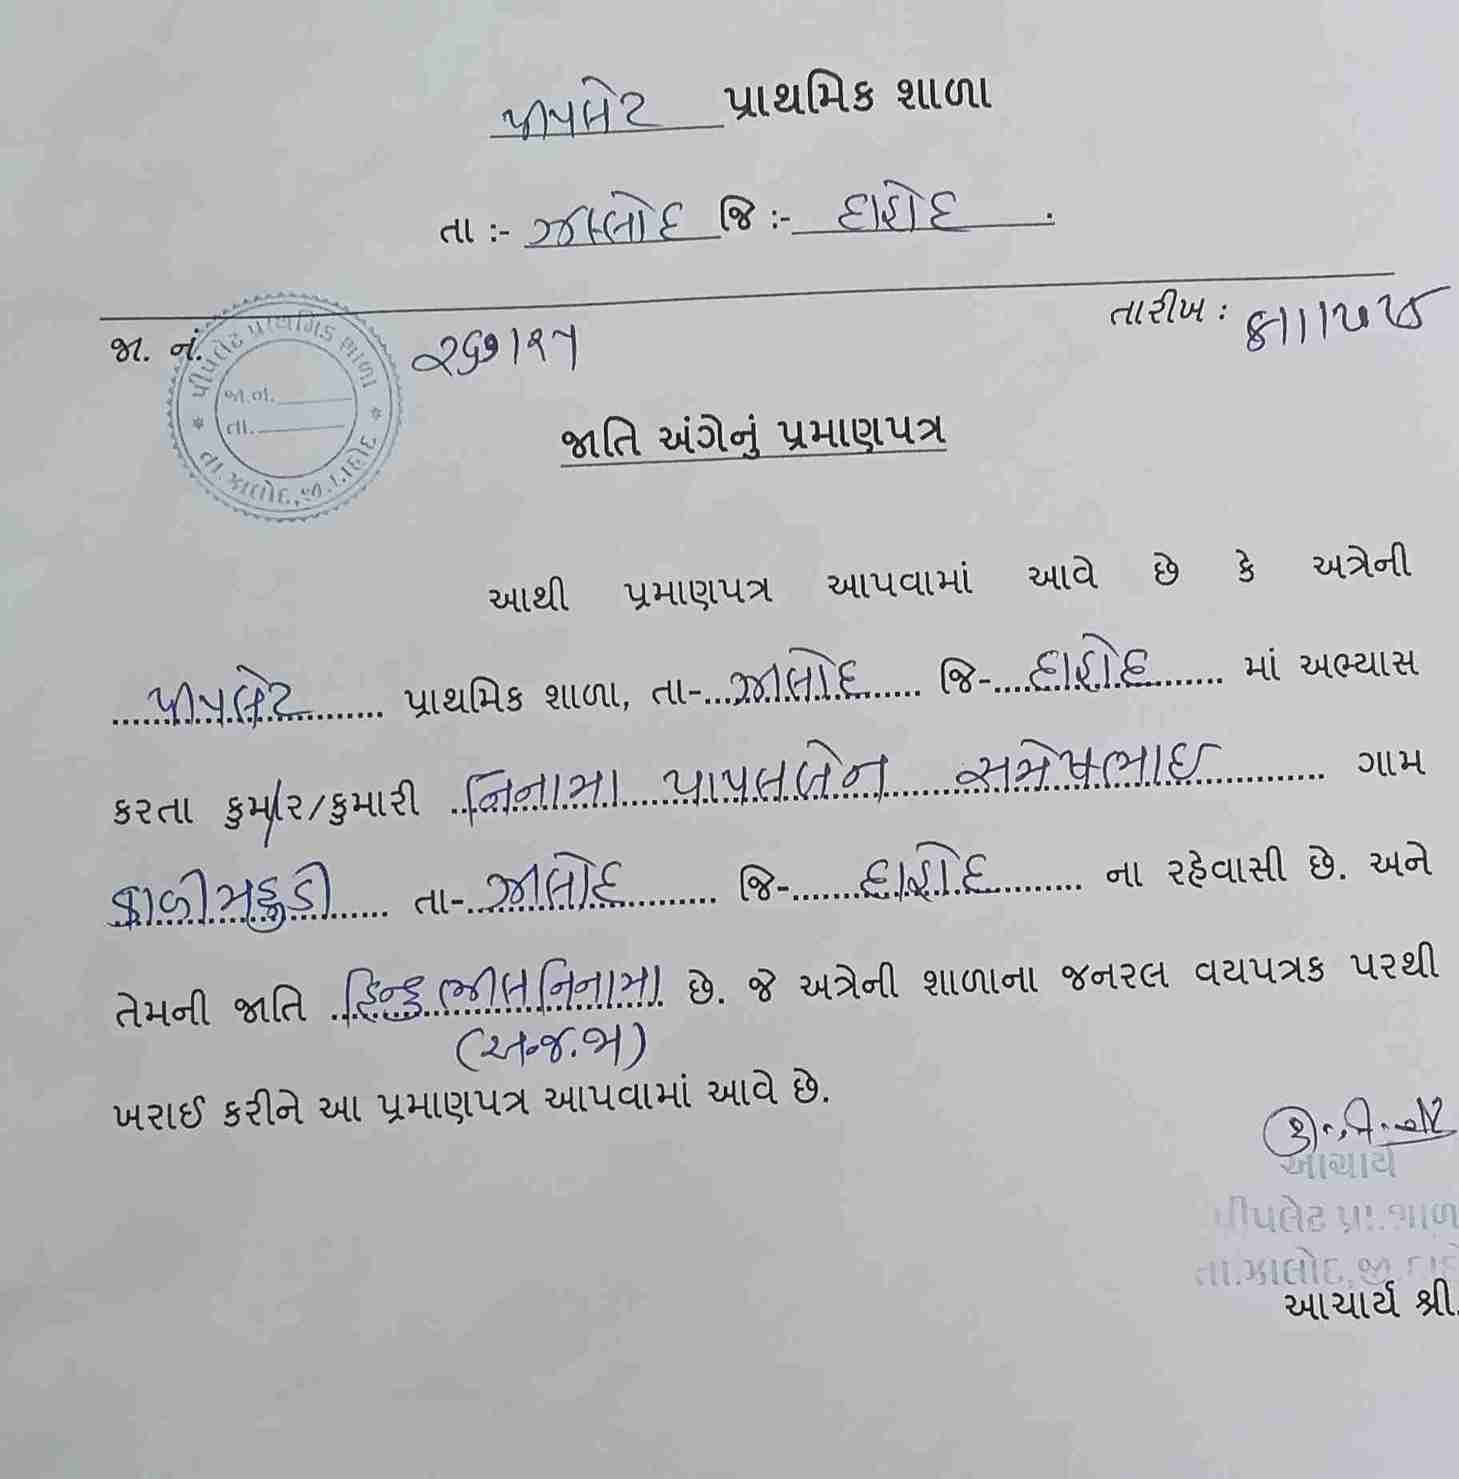 પીપલેટ પ્રાથમિક શાળા
તા :- ઝાલોદ જિ :- દાહોદ .
જા. નં. ૨૬૭/૨૧ તારીખ :
પીપલેટ પ્રાથમિક શાળા
જા.નં.
તા.
તા.ઝાલોદ,જી.દાહોદ
જાતિ અંગેનું પ્રમાણપત્ર
આથી પ્રમાણપત્ર આપવામાં આવે છે કે અત્રેની
પીપલેટ પ્રાથમિક શાળા, તા-ઝાલોદ જિ-દાહોદ માં અભ્યાસ
કરતા કુમાર/કુમારી નિનામા પાયલબેન ગામ
કાળીમહુડી તા-ઝાલોદ જિ-દાહોદ ના રહેવાસી છે. અને
તેમની જાતિ હિન્દુ ભીલ નિનામા છે. જે અત્રેની શાળાના જનરલ વયપત્રક પરથી
(અ.જ.જા)
ખરાઈ કરીને આ પ્રમાણપત્ર આપવામાં આવે છે.
આચાર્ય
પીપલેટ પ્રા.શાળ
તા.ઝાલોદ,જી.દાહ
આચાર્ય શ્રી.